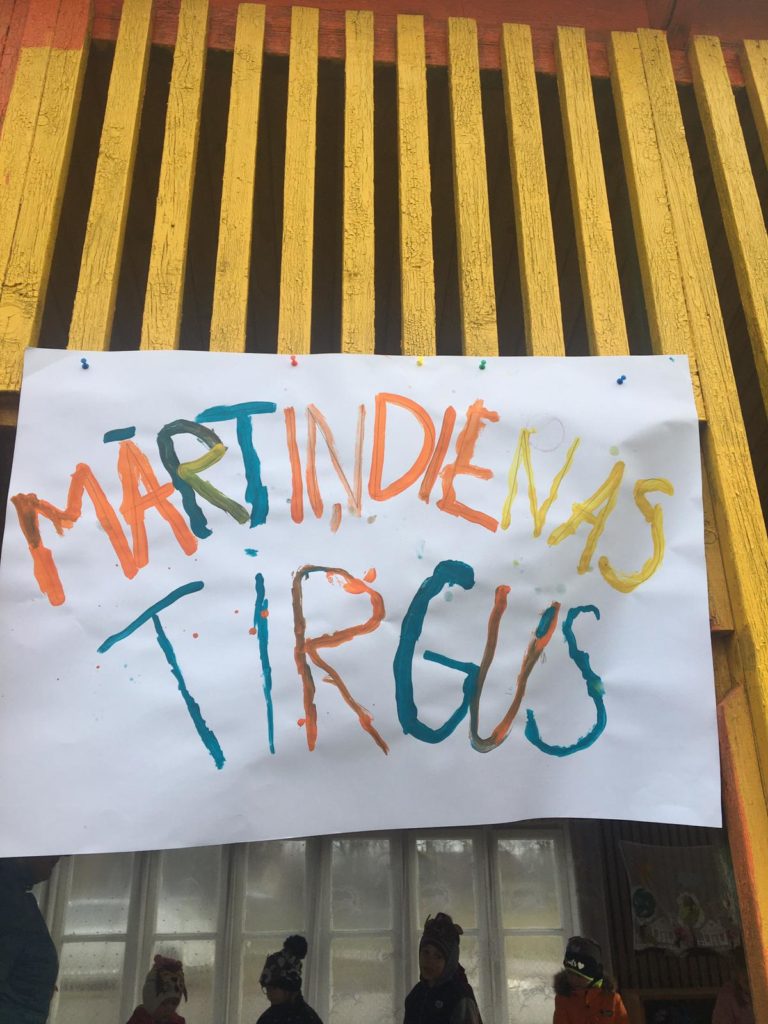 MĀRTIŅDIENAS
TIRGUS